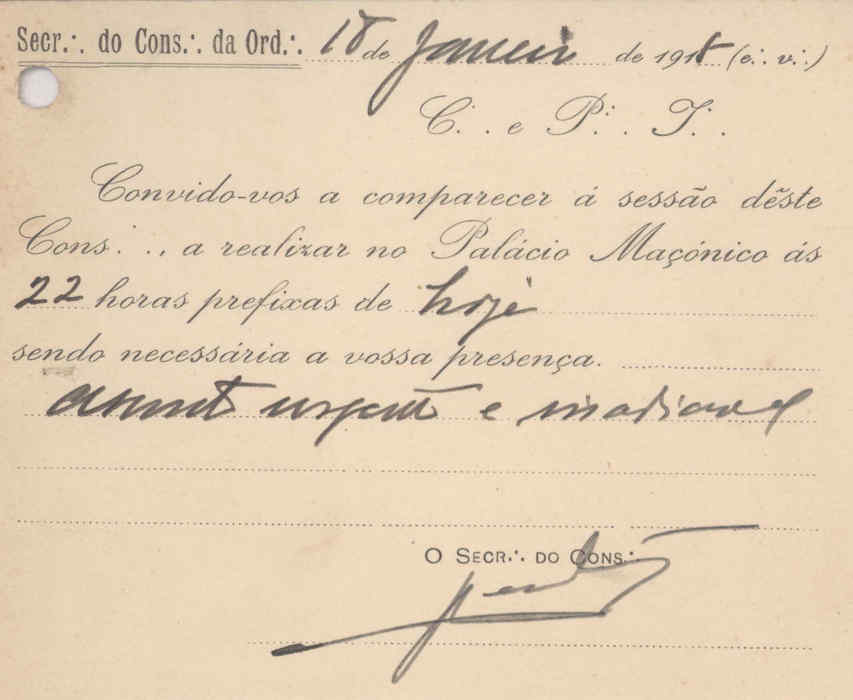 Secr.·. do Cons.·. da Ord.·. 18 de Janeiro de 1918 (e.·. v.·.)
C.·. e P.·. I.·.
Convido-vos a comparecer á sessão dêste
Cons.·., a realizar no Palácio Maçónico ás
22 horas prefixas de hoje
sendo necessária a vossa presença.
assunto urgente e inadiavel
O SECR.·. DO CONS.·.